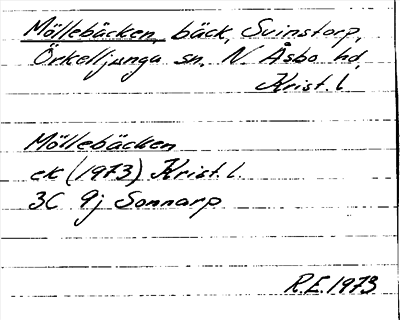 Möllebäcken, bäck, Svinstorp,
Örkelljunga sn. N. Åsbo hd,
Krist. l
Möllebäcken
ek (1973) Krist. l.
3C 9j Sonnarp
R.E. 1973